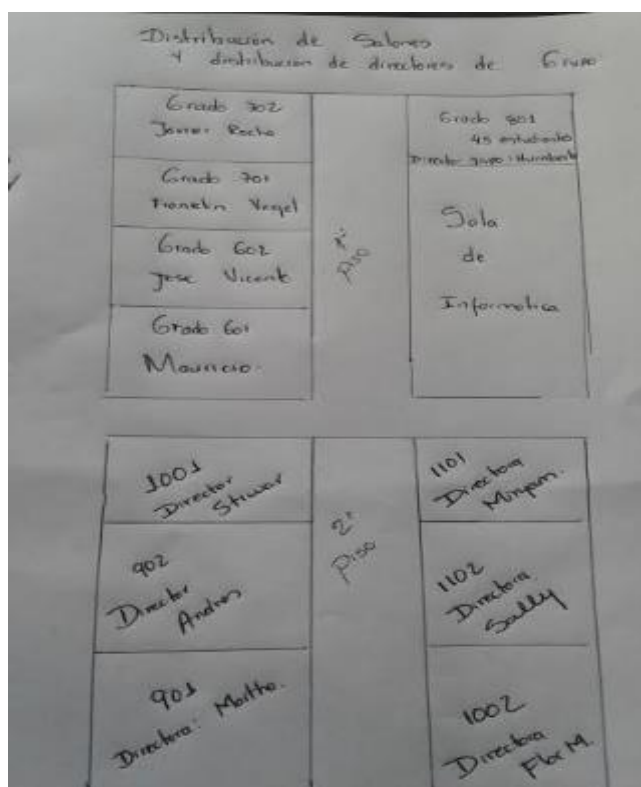 Distribución de Salones
Y distribución de directores de Grupo
Grado 702
Javier Rocha
Grado 701
Franklin Vergel
Grado 602
Jose Vicente
Grado 601
Mauricio.
1er
piso
Grado 801
45 estudiantes
Director grupo: Humberto
Sala
de
Informatica
1001
Director
Stiwar
902
Director
Andres
901
Directora: Martha.
2º
piso
1101
Directora
Miryam.
1102
Directora
Sally
1002
Directora
Flor M.